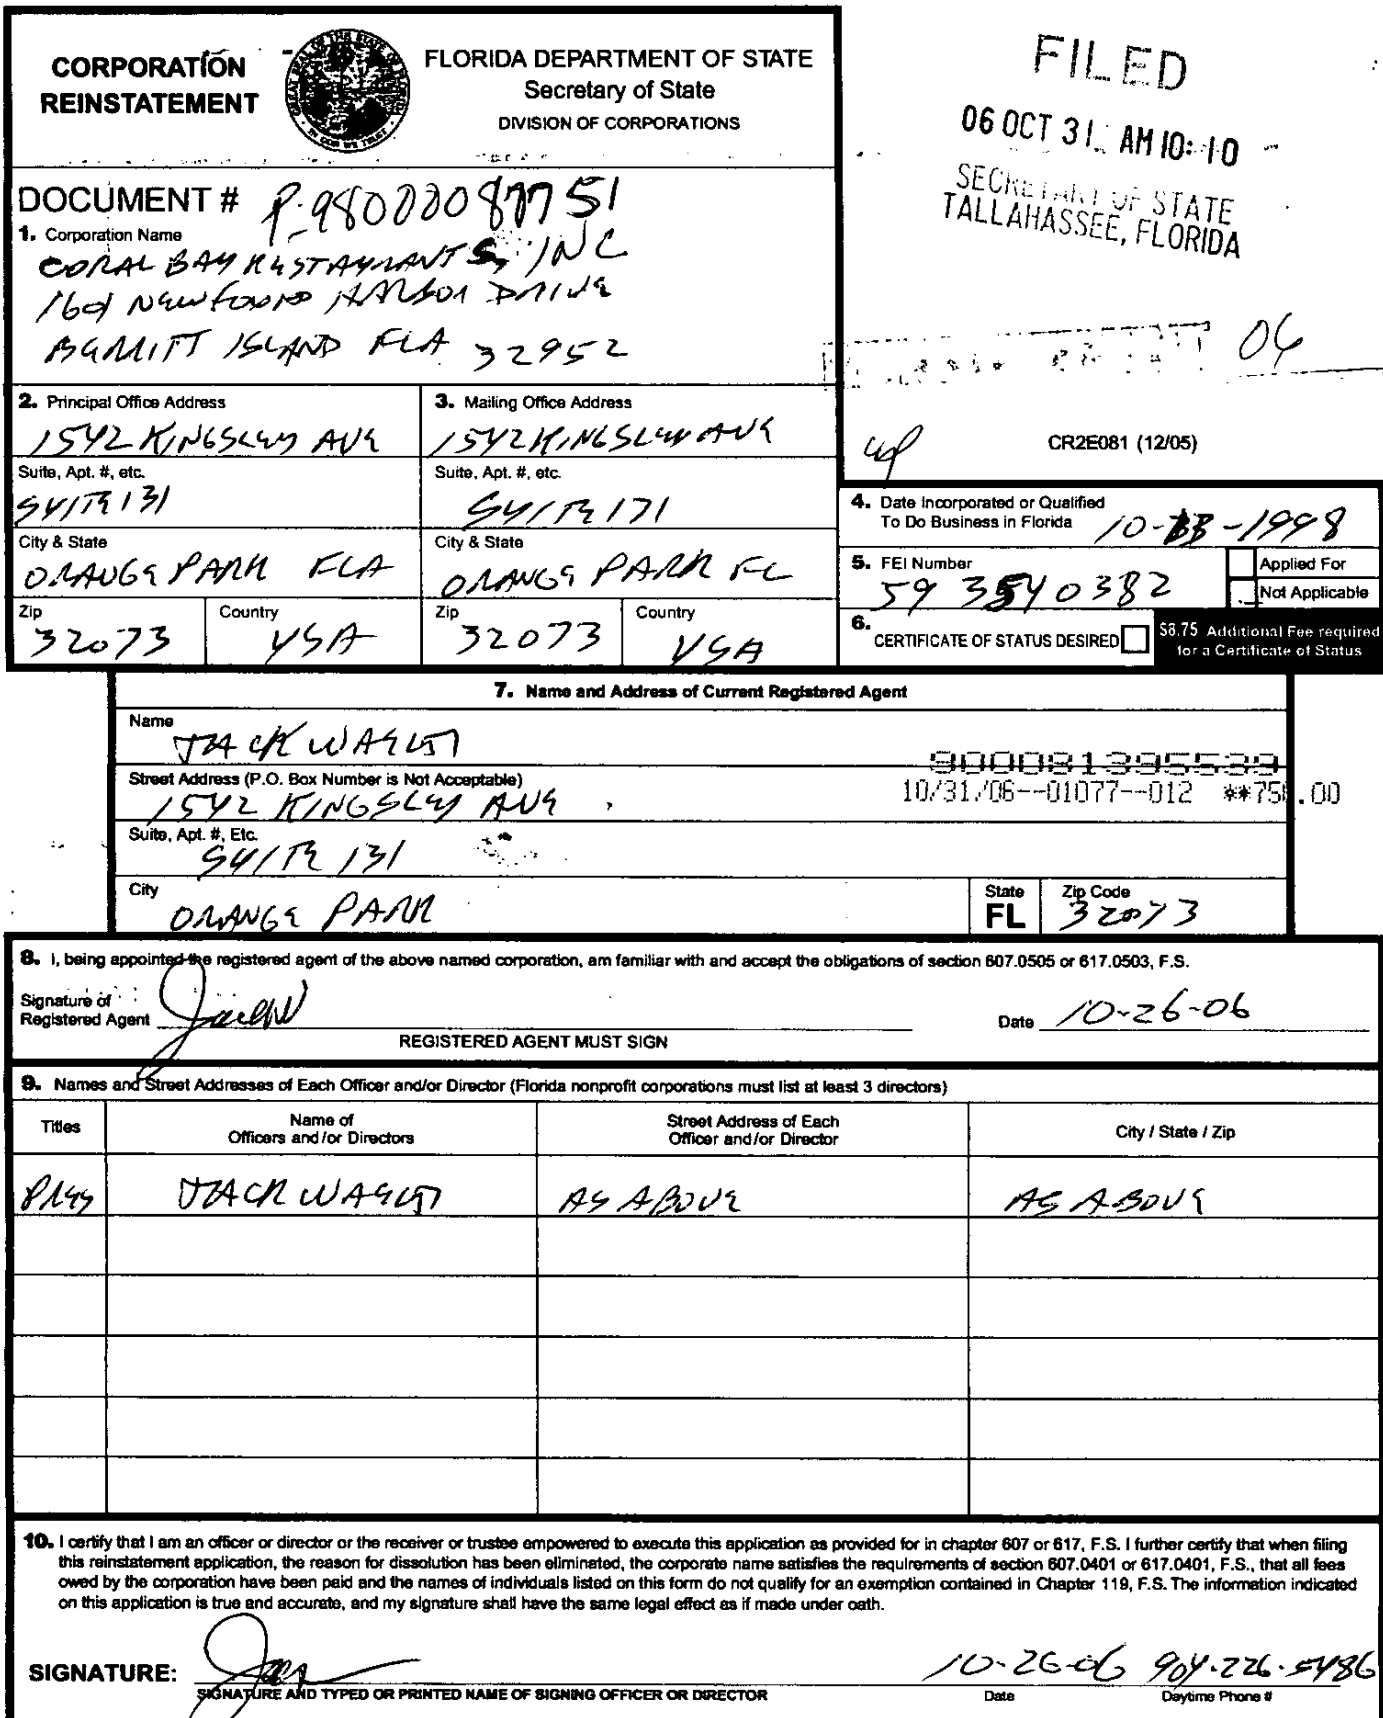 CORPORATION
REINSTATEMENT
FLORIDA DEPARTMENT OF STATE
Secretary of State
DIVISION OF CORPORATIONS
FILED
06 OCT 31 AM 10:10
SECRETARY OF STATE
TALLAHASSEE, FLORIDA
DOCUMENT # P-98000087751
1. Corporation Name
CORAL BAY RESTAURANTS, INC
1601 NEWFOUND HARBOR DRIVE
MERRITT ISLAND FLA 32952
06
CR2E081 (12/05)
2. Principal Office Address
1542 KINGSLEY AVE
3. Mailing Office Address
1542 KINGSLEY AVE
Suite, Apt. #, etc.
SUITE 131
Suite, Apt. #, etc.
SUITE 131
City & State
ORANGE PARK FLA
City & State
ORANGE PARK FL
Zip
32073
Country
USA
Zip
32073
Country
USA
4. Date Incorporated or Qualified
To Do Business in Florida 10- -1998
5. FEI Number
59 3540382
Applied For
Not Applicable
6. CERTIFICATE OF STATUS DESIRED
$8.75 Additional Fee required
for a Certificate of Status
7. Name and Address of Current Registered Agent
Name
JACK
900081395539
10/31/06--01077--012 **750.00
Street Address (P.O. Box Number is Not Acceptable)
1542 KINGSLEY AVE
Suite, Apt. #, Etc.
SUITE 131
City
ORANGE PARK
State
FL
Zip Code
32073
8. I, being appointed the registered agent of the above named corporation, am familiar with and accept the obligations of section 607.0505 or 617.0503, F.S.
Signature of
Registered Agent
Date 10-26-06
REGISTERED AGENT MUST SIGN
9. Names and Street Addresses of Each Officer and/or Director (Florida nonprofit corporations must list at least 3 directors)
Titles
Name of
Officers and/or Directors
Street Address of Each
Officer and/or Director
City / State / Zip
PRES
JACK
AS ABOVE
AS ABOVE
10. I certify that I am an officer or director or the receiver or trustee empowered to execute this application as provided for in chapter 607 or 617, F.S. I further certify that when filing
this reinstatement application, the reason for dissolution has been eliminated, the corporate name satisfies the requirements of section 607.0401 or 617.0401, F.S., that all fees
owed by the corporation have been paid and the names of individuals listed on this form do not qualify for an exemption contained in Chapter 119, F.S. The information indicated
on this application is true and accurate, and my signature shall have the same legal effect as if made under oath.
SIGNATURE:
10-26-06 904-226-5486
SIGNATURE AND TYPED OR PRINTED NAME OF SIGNING OFFICER OR DIRECTOR
Date
Daytime Phone #